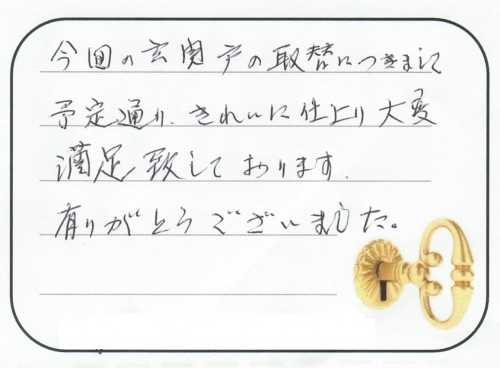 今回の玄関戸の取替につきまして
予定通り、きれいに仕上り大変
満足致しております。
有りがとうございました。